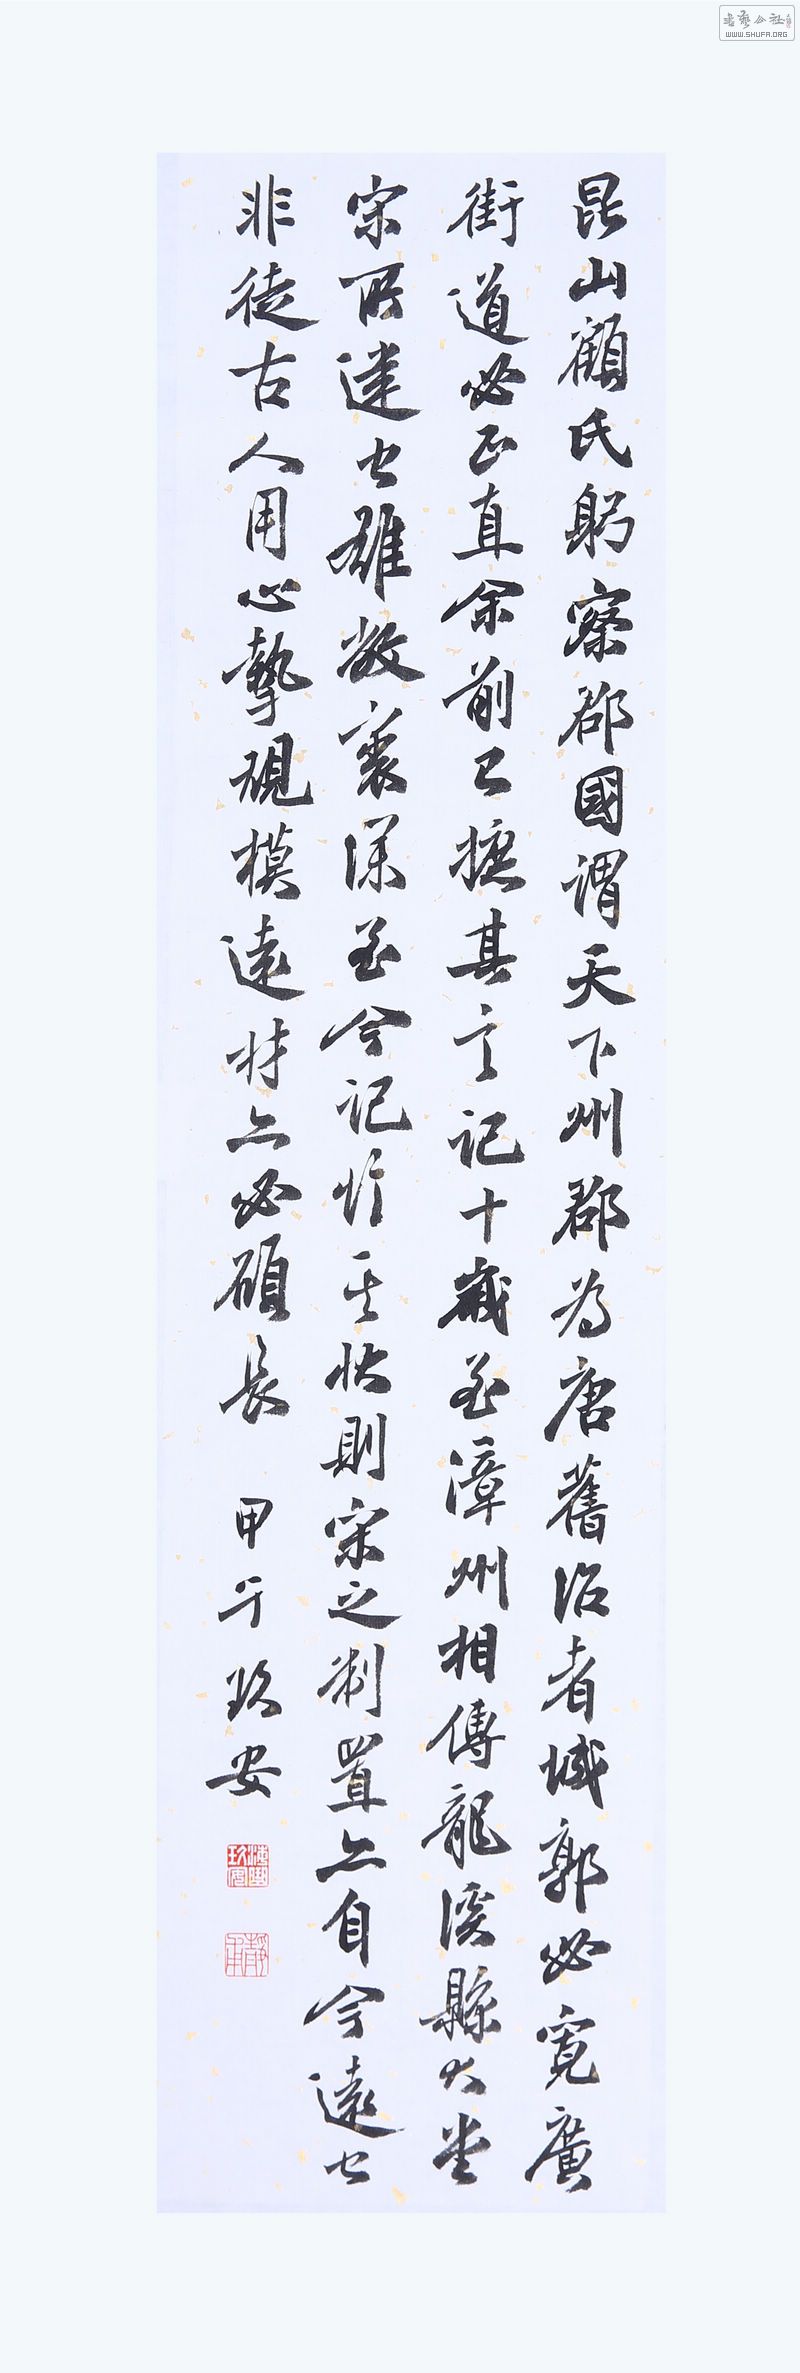 昆山顧氏躬察郡國謂天下州郡為唐舊治者城郭必寬廣
街道必正直余前已摭其言記十歲至漳州相傳龍溪縣大堂
宋所建也雄敞褱深至今記忆其状則宋之制置亦自今遠也
非徒古人用心摯規模遠材亦必碩長 甲午玖安
書藝公社
WWW.SHUFA.ORG